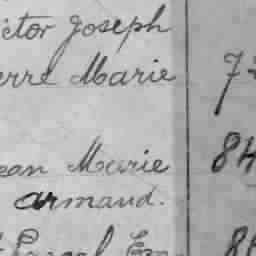 ictor Joseph
erre Marie 7
ean Marie 84
armand.